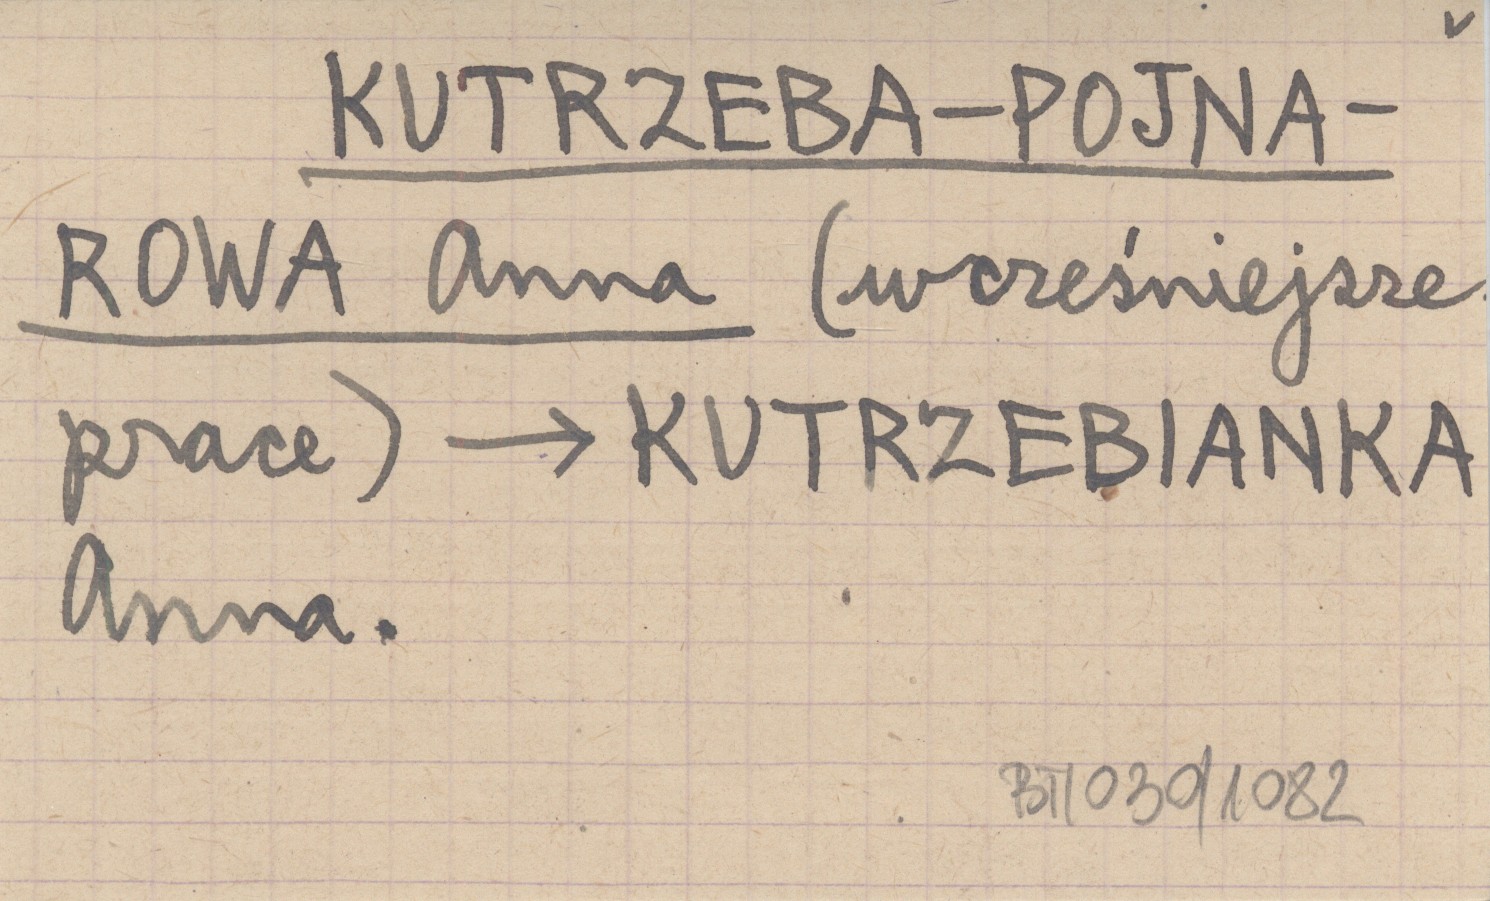 v
KUTRZEBA-POJNA-
ROWA Anna (wcześniejsze
prace) → KUTRZEBIANKA
Anna.
BT/030/1082